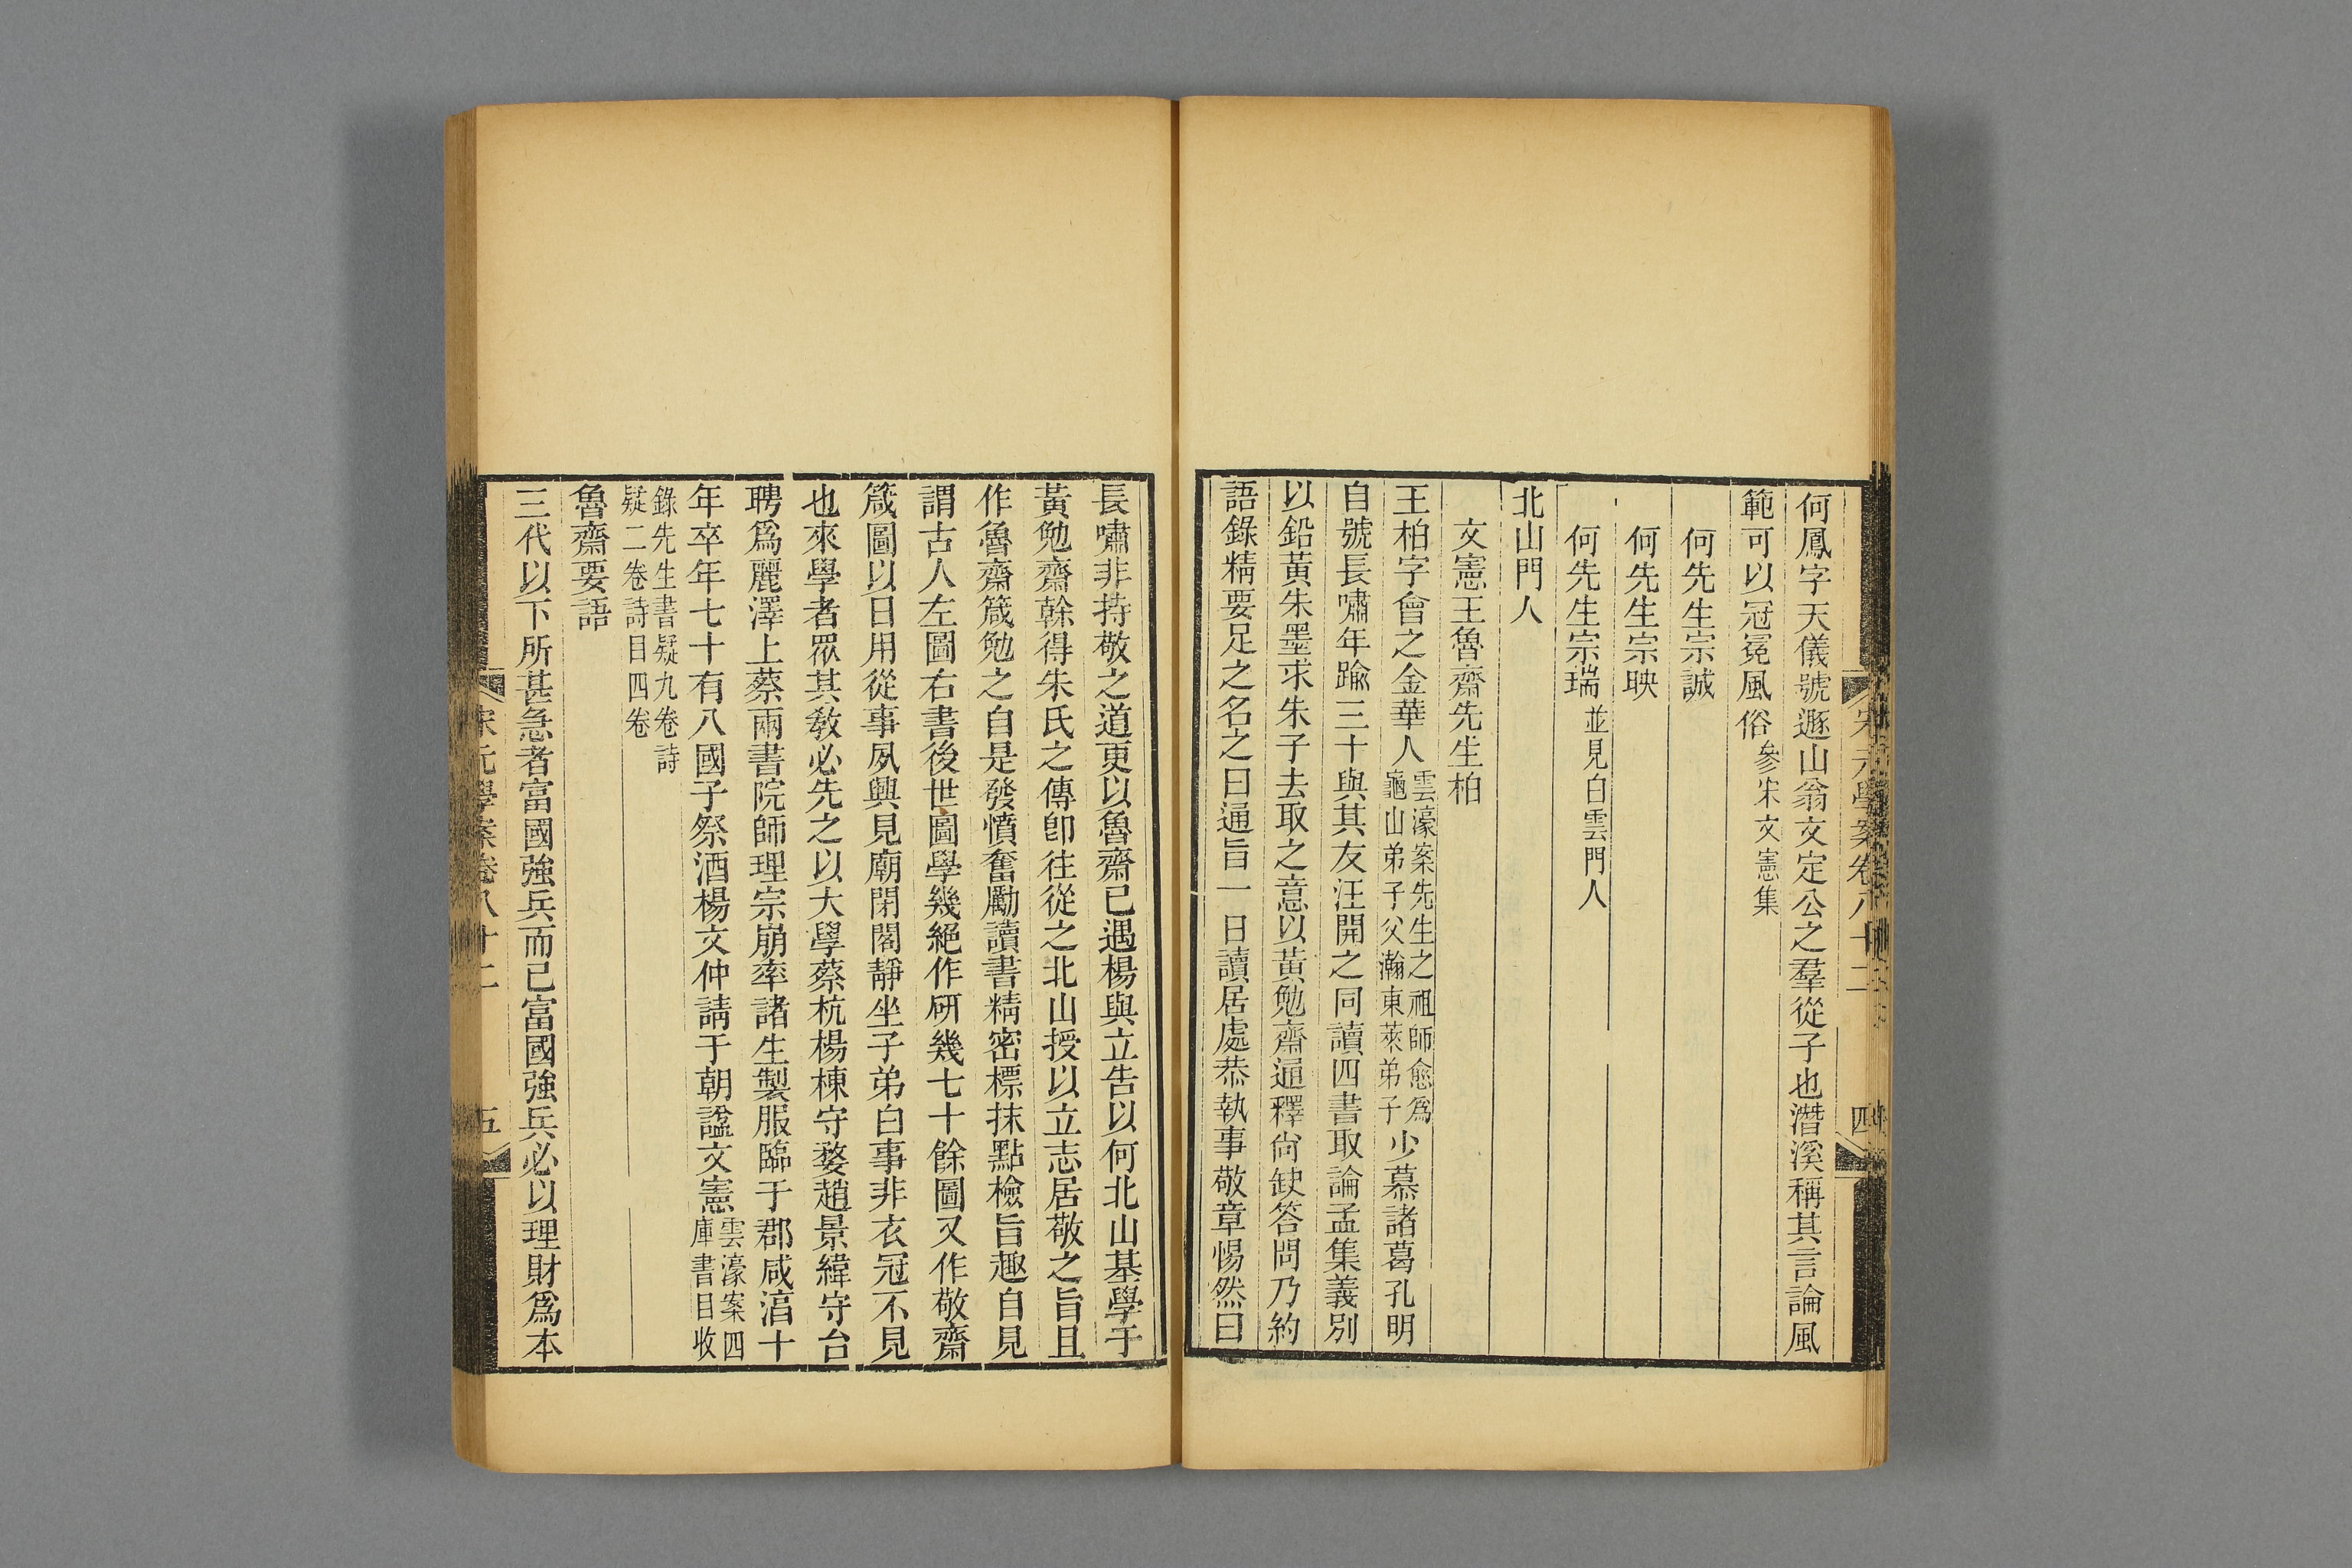 何鳳字天儀號遯山翁文定公之羣從子也潛溪稱其言論風
範可以冠冕風俗參宋文憲集
何先生宗誠
何先生宗映
何先生宗瑞並見白雲門人
北山門人
文憲王魯齋先生柏
王柏字會之金華人雲濠案先生之祖師愈爲龜山弟子父瀚東萊弟子少慕諸葛孔明
自號長嘯年踰三十與其友汪開之同讀四書取論孟集義別
以鉛黃朱墨求朱子去取之意以黃勉齋通釋尙缺答問乃約
語錄精要足之名之曰通旨一日讀居處恭執事敬章惕然曰
長嘯非持敬之道更以魯齋已遇楊與立告以何北山基學于
黃勉齋榦得朱氏之傳卽往從之北山授以立志居敬之旨且
作魯齋箴勉之自是發憤奮勵讀書精密標抹點檢旨趣自見
謂古人左圖右書後世圖學幾絕作硏幾七十餘圖又作敬齋
箴圖以日用從事夙興見廟閉閣靜坐子弟白事非衣冠不見
也來學者眾其敎必先之以大學蔡杭楊棟守婺趙景緯守台
聘爲麗澤上蔡兩書院師理宗崩率諸生製服臨于郡咸淳十
年卒年七十有八國子祭酒楊文仲請于朝諡文憲雲濠案四庫書目收
錄先生書疑九卷詩疑二卷詩目四卷
魯齋要語
三代以下所甚急者富國強兵而已富國強兵必以理財爲本
宋元學案卷八十二
五